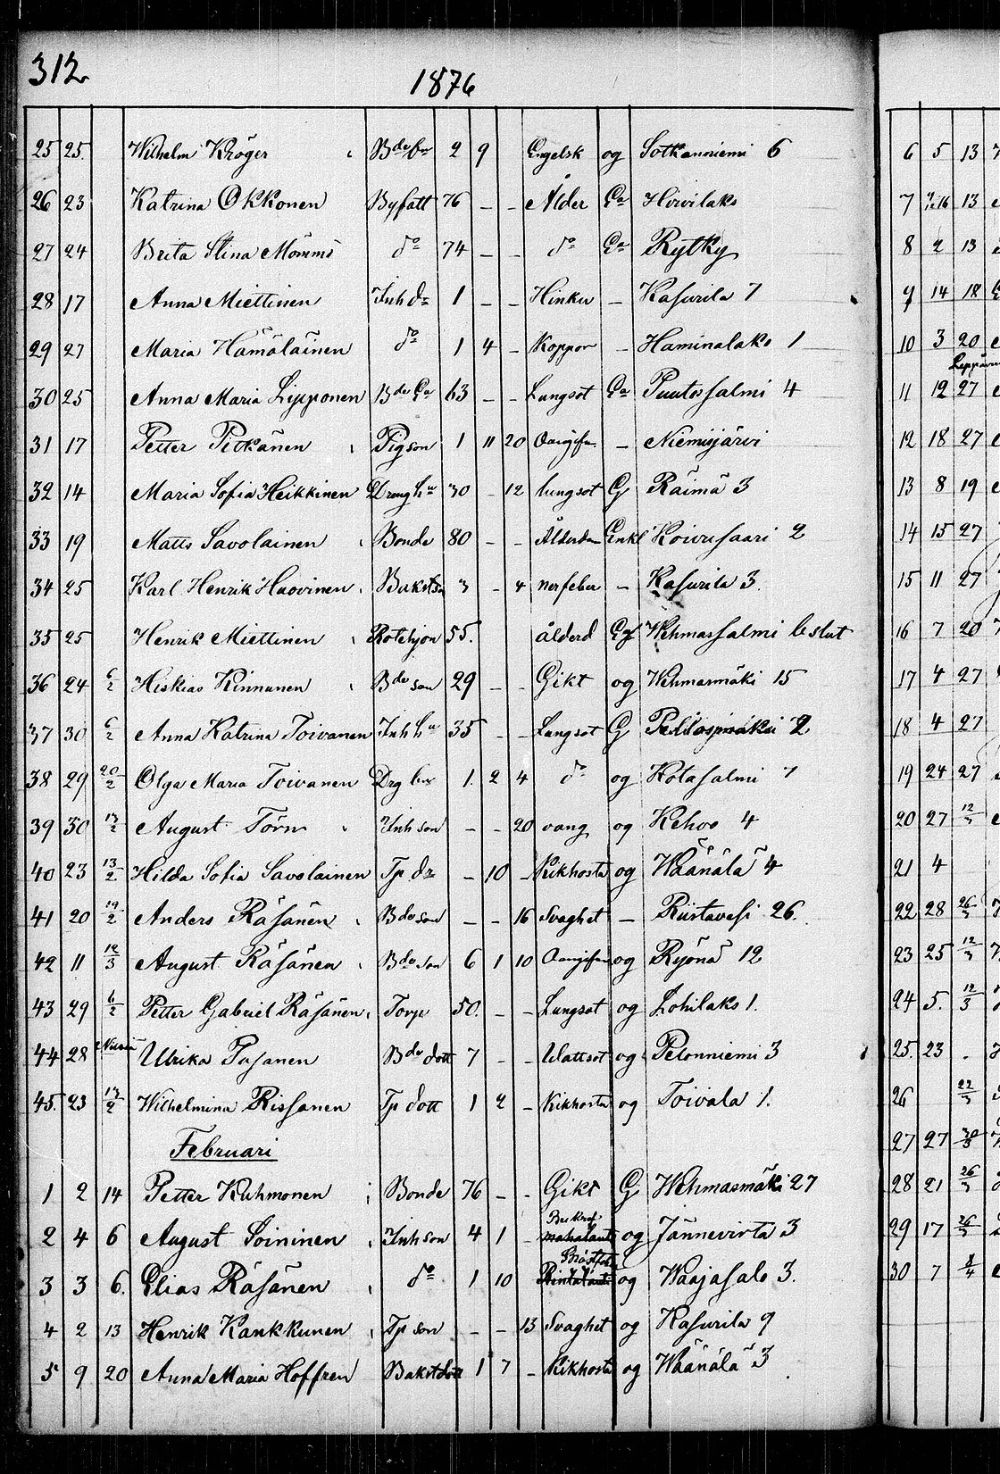 312
1876
25 25. Wilhelm Kröger Bde 2 9 Engelsk og Sotkanniemi 6
26 23 Katrina Okkonen Byfatt 76 - - Ålder Ea Hirvilaks
27 24 Brita Stina Mömmö do 74 - - do Ea Rytky
28 17 Anna Miettinen Inh dr 1 - - Hinku - Kasurila 7
29 27 Maria Hämäläinen do 1 4 - Koppor - Haminalaks 1
30 25 Anna Maria Lipponen Bde Ea 63 - - Lungsot Ea Puutossalmi 4
31 17 Petter Pitkänen Pigson 1 11 20 Oangifv - Niemisjärvi
32 14 Maria Sofia Heikkinen Dreng hu 30 - 12 lungsot G Räimä 3
33 19 Matts Savolainen Bonde 80 - - Ålderdom Enkl Koivusaari 2
34 25 Karl Henrik Huovinen Bakstson 3 - 4 nerfeber - Kasurila 3.
35 25 Henrik Miettinen Rotehjon 55. ålderd Eg Wehmassalmi beslut
36 24 6/2 Hiskias Kinnunen Bdeson 29 - - Gikt og Wehmasmäki 15
37 30 6/2 Anna Katrina Toivanen Inh hu 35 - - Lungsot G 2
38 29 20/2 Olga Maria Toivanen Drg 1. 2 4 do og Kotasalmi 7
39 30 13/2 August Törn Inh son - - 20 vang og Kehvo 4
40 23 13/2 Hilda Sofia Savolainen Tp dr - 10 - Kikhosta og Wäänälä 4
41 20 19/2 Anders Räsänen Bdeson - - 16 Svaghet - Riistavesi 26.
42 11 12/3 August Räsänen Bdeson 6 1 10 Oangifven og Ryönä 12
43 29 6/2 Petter Gabriel Räsänen Torp 50. - - Lungsot og Lohilaks 1.
44 28 Nilsiä Ulrika Tossanen Bde dott 7 - - Wattsot og Pelonniemi 3
45. 23 13/2 Wilhelmina Rissanen Tp dott 1 2 - Kikhosta og Toivala 1.
Februari
1 2 14 Petter Kuhmonen Bonde 76 - - Gikt G Wehmasmäki 27
2 4 6 August Soininen Inhson 4 1 - og Jännevirta 3
3 3 6. Elias Räsänen do 1 10 og Waajasalo 3.
4 2 13 Henrik Kankkunen Tp son - - 13 Svaghet og Kasurila 9
5 9 20 Anna Maria Hoffren Bakstdott 1 7 - Kikhosta og Wäänälä 3
6 5 13
7 13
8 2 13
9 14 18
10 3 20
11 12 27
12 18 27
13 8 19
14 15 27
15 11 27
16 7 20
17 4 27
18 4 27
19 24 27
20 27 12/3
21 4
22 28 26/3
23 25 12/3
24 5. 12/3
25. 23
26 22/3
27 27
28 21 26/3
29 17 26/3
30 7 2/4